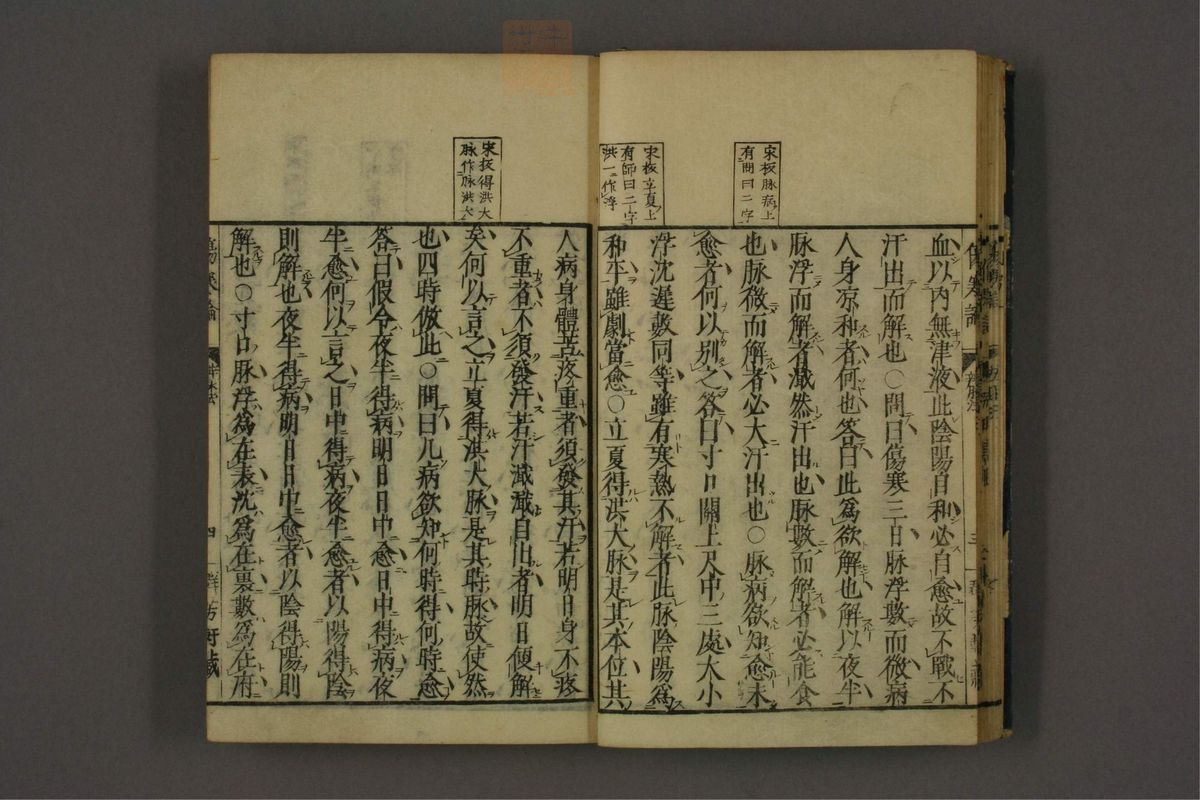 宋板脉病上
有問曰二字
宋板立夏上
有師曰二字
洪一作浮
血以内無津液此陰陽自和必自愈故不戰不
汗出而解也○問曰傷寒三日脉浮數而微病
人身凉和者何也答曰此爲欲解也解以夜半
脉浮而解者濈然汗出也脉數而解者必能食
也脉微而解者必大汗出也○脉病欲知愈未
愈者何以别之答曰寸口關上尺中三處大小
浮沈遲數同等雖有寒熱不解者此脉陰陽爲
和平雖劇當愈○立夏得洪大脉是其本位其
宋板得洪大
脉作脉洪大
人病身體苦疼重者須發其汗若明日身不疼
不重者不須發汗若汗濈濈自出者明日便解
矣何以言之立夏得洪大脉是其時脉故使然
也四時倣此○問曰凡病欲知何時得何時愈
答曰假令夜半得病明日日中愈日中得病夜
半愈何以言之日中得病夜半愈者以陽得陰
則解也夜半得病明日日中愈者以陰得陽則
解也○寸口脉浮爲在表沈爲在裏數爲在府
傷寒論 辨脉法 四